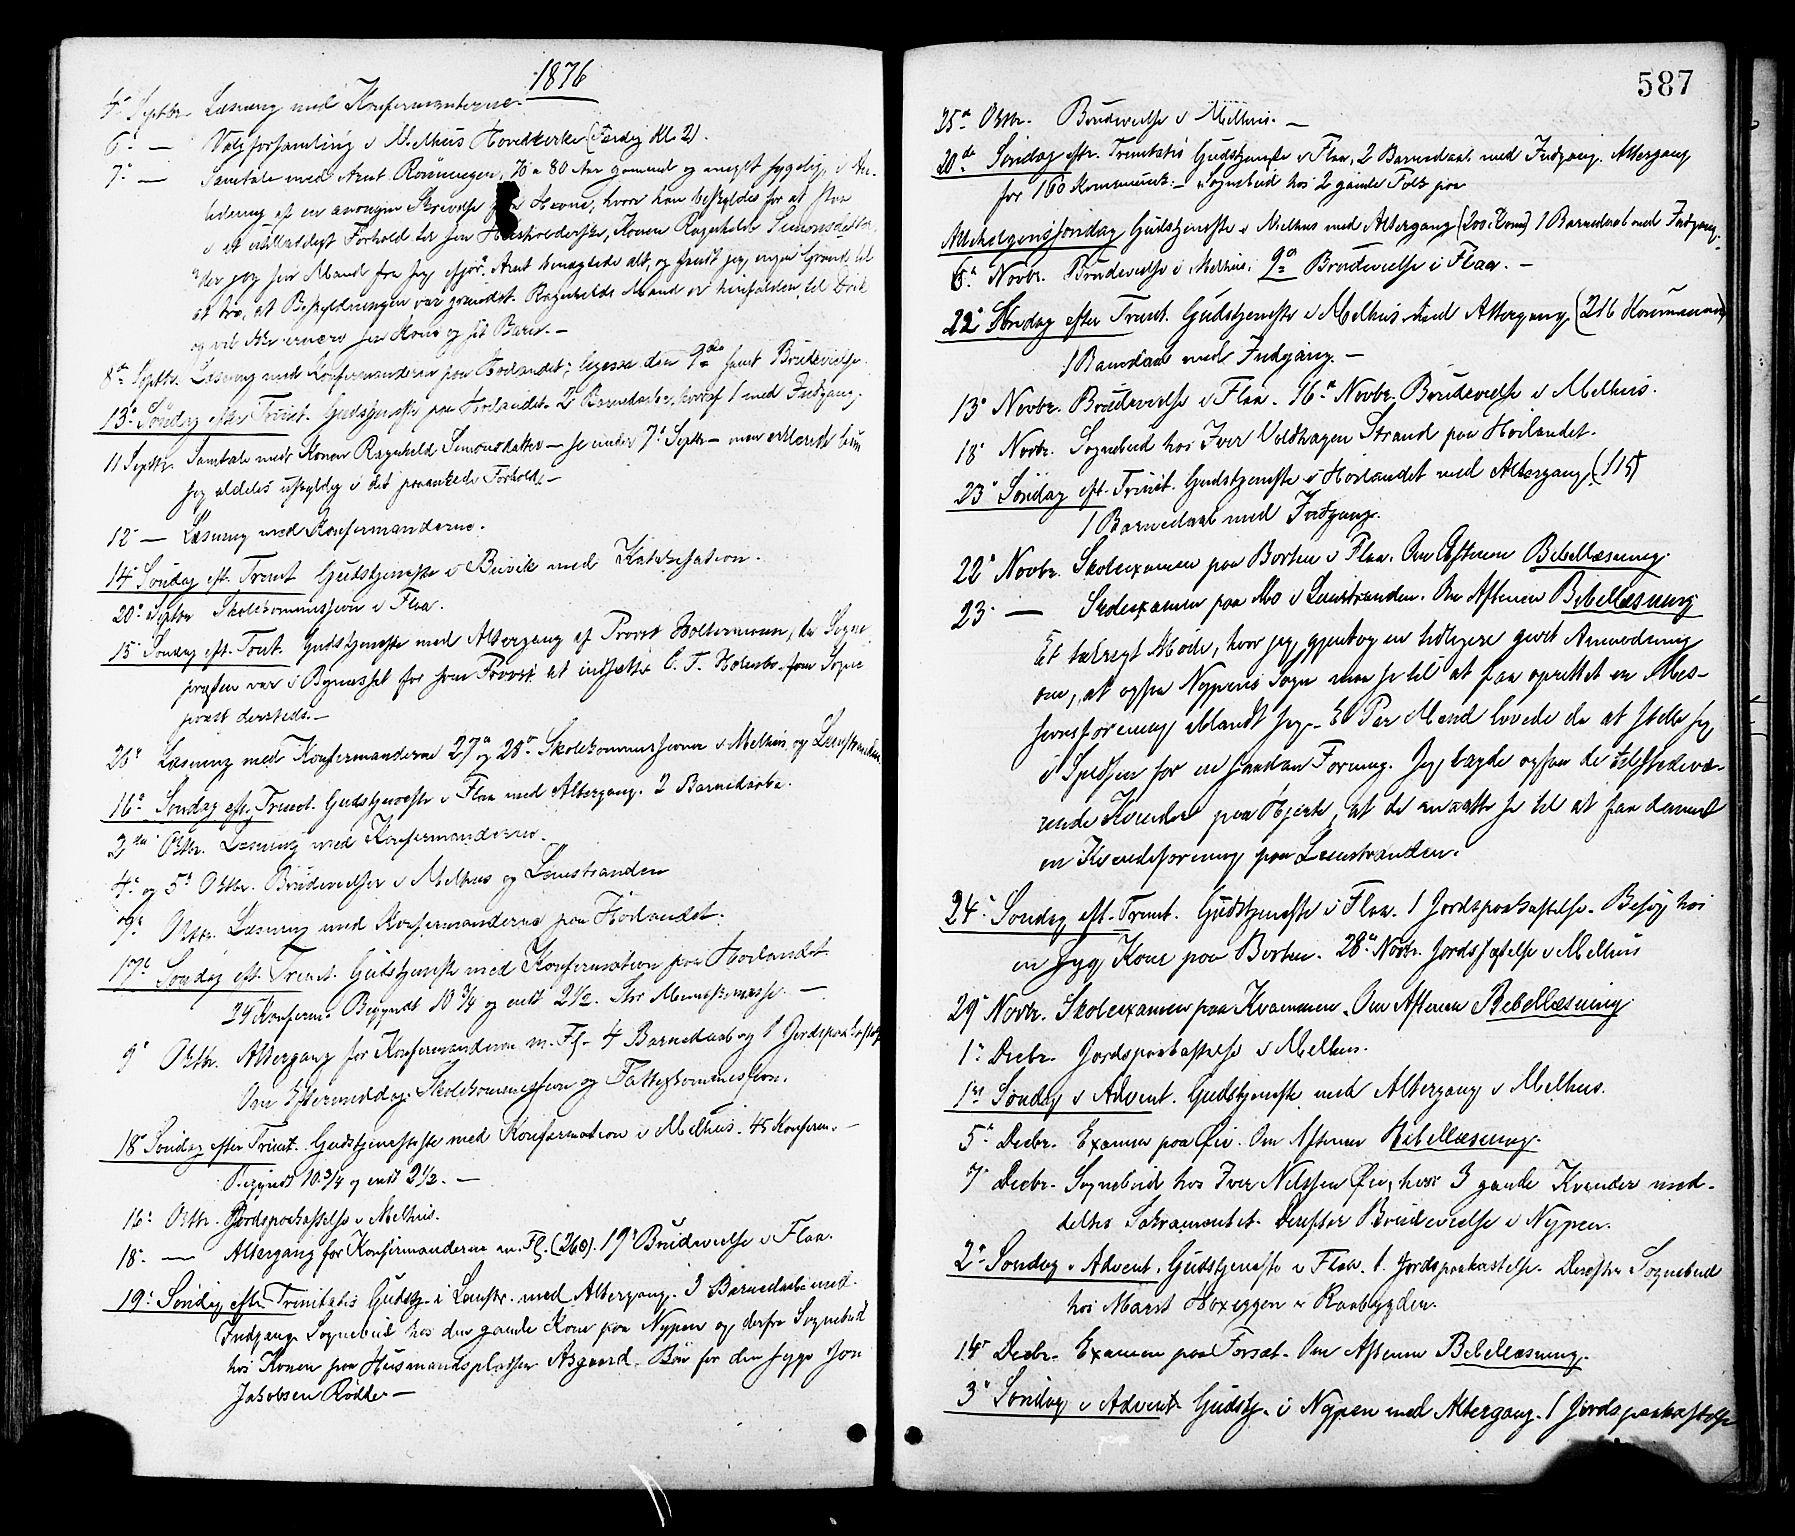 1876
4de Septbr. Læsning med Konfirmanterne.
6te — Valgforsamling i Melhus Hovedkirke (Færdig Kl. 2).
7de — Samtale med Arnt Rönningen, 70 a 80 Aar gammel og meget sygelig, i An-
ledning af en anonym Skrivelse fra Hevne, hvori han beskyldes for at staa
i et utilladeligt Forhold til sin Husholderske, Konen Ragnhild Simonsdatter,
der jog sin Mand fra sig ifjor. Arnt benægtede alt, og fandt jeg ingen Grund til
at tro, at Beskyldningen var grundet. Ragnhilds Mand er henfalden til Drik
og vil ikke ernære sin Kone og sit Barn. —
8de Septbr. Læsning med Konfirmanderne paa Hölandet; ligesaa den 9de samt Brudevielse.
13de Søndag efter Trinit. Gudstjeneste paa Hölandet. 2 Barnedaabe, hvoraf 1 med Indgang.
11 Septbr. Samtale med Konen Ragnhild Simonsdatter — se under 7de Septbr — men erklærede hun
sig aldeles uskyldig i det paaankede Forhold. —
12 — Læsning med Konfirmanderne.
14de Søndag eft. Trinit Gudstjeneste i Buvik med Katekisation.
20de Septbr Skolekommission i Flaa.
15de Søndag eft. Trinit. Gudstjeneste med Altergang af Provst Holtermann, da Sogne-
præsten var i Bynæsset for som Provst at indsætte C. T. Holenbo som Sogne-
præst dersteds. —
26de Læsning med Konfirmanderne 27de og 28de Skolekommissioner i Melhus og Leinstranden
16de Søndag eft. Trinit. Gudstjeneste i Flaa med Altergang. 2 Barnedaabe.
3die Oktbr. Læsning med Konfirmanderne.
4de og 5te Oktbr. Brudevielser i Melhus og Leinstranden
7de Oktbr. Læsning med Konfirmanderne paa Hölandet.
17de Søndag eft. Trinit. Gudstjeneste med Konfirmation paa Hölandet.
29 Konfirm. Begyndt 10 3/4 og endt 2 1/2. Stor Menneskemasse. —
9de Oktbr. Altergang for Konfirmanderne m. Fl. 4 Barnedaab og 1 Jordspaakastelse
Om Eftermiddag. Skolekommission og Fattigkommission.
18de Søndag efter Trinit. Gudstjeneste med Konfirmation i Melhus. 45 Konfirm. —
Begyndt 10 3/4 og endt 2 1/2. —
16de Oktbr. Jordspaakastelse i Melhus.
18de — Altergang for Konfirmanderne m. Fl. (260). 19de Brudevielse i Flaa.
19de Søndag efter Trinitatis Gudstj. i Leinstr. med Altergang. 3 Barnedaabe med
Indgang. Sognebud hos den gamle Kone paa Nypen og derfra Sognebud
hos Konen paa Husmandspladsen Asgaard. Bön for den syge Jon
Jakobsen Rödde —
587
25de Oktbr. Brudevielse i Melhus. —
20de Søndag eftr. Trinitatis Gudstjeneste i Flaa, 2 Barnedaab med Indgang. Altergang
for 160 Kommunik. — Sognebud hos 2 gamle Folk paa
Allehelgenssøndag Gudstjeneste i Melhus med Altergang (200 Kom) 1 Barnedaab med Indgang.
6te Novbr. Brudevielse i Melhus. 9de Brudevielse i Flaa. —
22de Søndag efter Trinit. Gudstjeneste i Melhus med Altergang (216 Kommunik)
1 Barnedaab med Indgang. —
13de Novbr. Brudevielse i Flaa. 16de Novbr. Brudevielse i Melhus.
18de Novbr. Sognebud hos Iver Voldhagen Strand paa Höilandet.
23de Søndag eft. Trinit. Gudstjeneste i Hölandet med Altergang (115)
1 Barnedaab med Indgang.
22de Novbr. Skoleexamen paa Borten i Flaa. Om Aftenen Bibellæsning.
23. — Skoleexamen paa Mo i Leinstranden. Om Aftenen Bibellæsning
Et talrigt Møde, hvor jeg gjentog en tidligere givet Anmodning
om, at ogsaa Nypens Sogn maa se til at faa oprettet en Mis-
sionsforening iblandt sig. Et Par Mænd lovede da at stille sig
i Spidsen for en saadan Forening. Jeg lagde ogsaa de tilstedevæ-
rende Kvinder paa Hjerte, at de maatte se til at faa dannet
en Kvindeforening paa Leinstranden.
24de Søndag eft. Trinit. Gudstjeneste i Flaa. 1 Jordspaakastelse. Besøg hos
en syg Kone paa Borten. 28de Novbr. Jordsfæstelse i Melhus
29de Novbr. Skoleexamen paa Kvammen. Om Aftenen Bibellæsning.
1ste Decbr. Jordspaakastelse i Melhus.
1ste Søndag i Advent. Gudstjeneste med Altergang i Melhus.
5te Decbr. Examen paa Øie. Om Aftenen Bibellæsning.
7de Decbr. Sognebud hos Iver Nilssen Øie, hvor 3 gamle Kvinder med-
deltes Sakramentet. Derefter Brudevielse i Nypen.
2den Søndag i Advent. Gudstjeneste i Flaa. 1. Jordspaakastelse. Derefter Sognebud
hos Marit Hoxeggen i Raabygden.
14de Decbr. Examen paa Forsæt. Om Aftenen Bibellæsning.
3die Søndag i Advent Gudstj. i Nypen med Altergang. 1 Jordspaakastelse